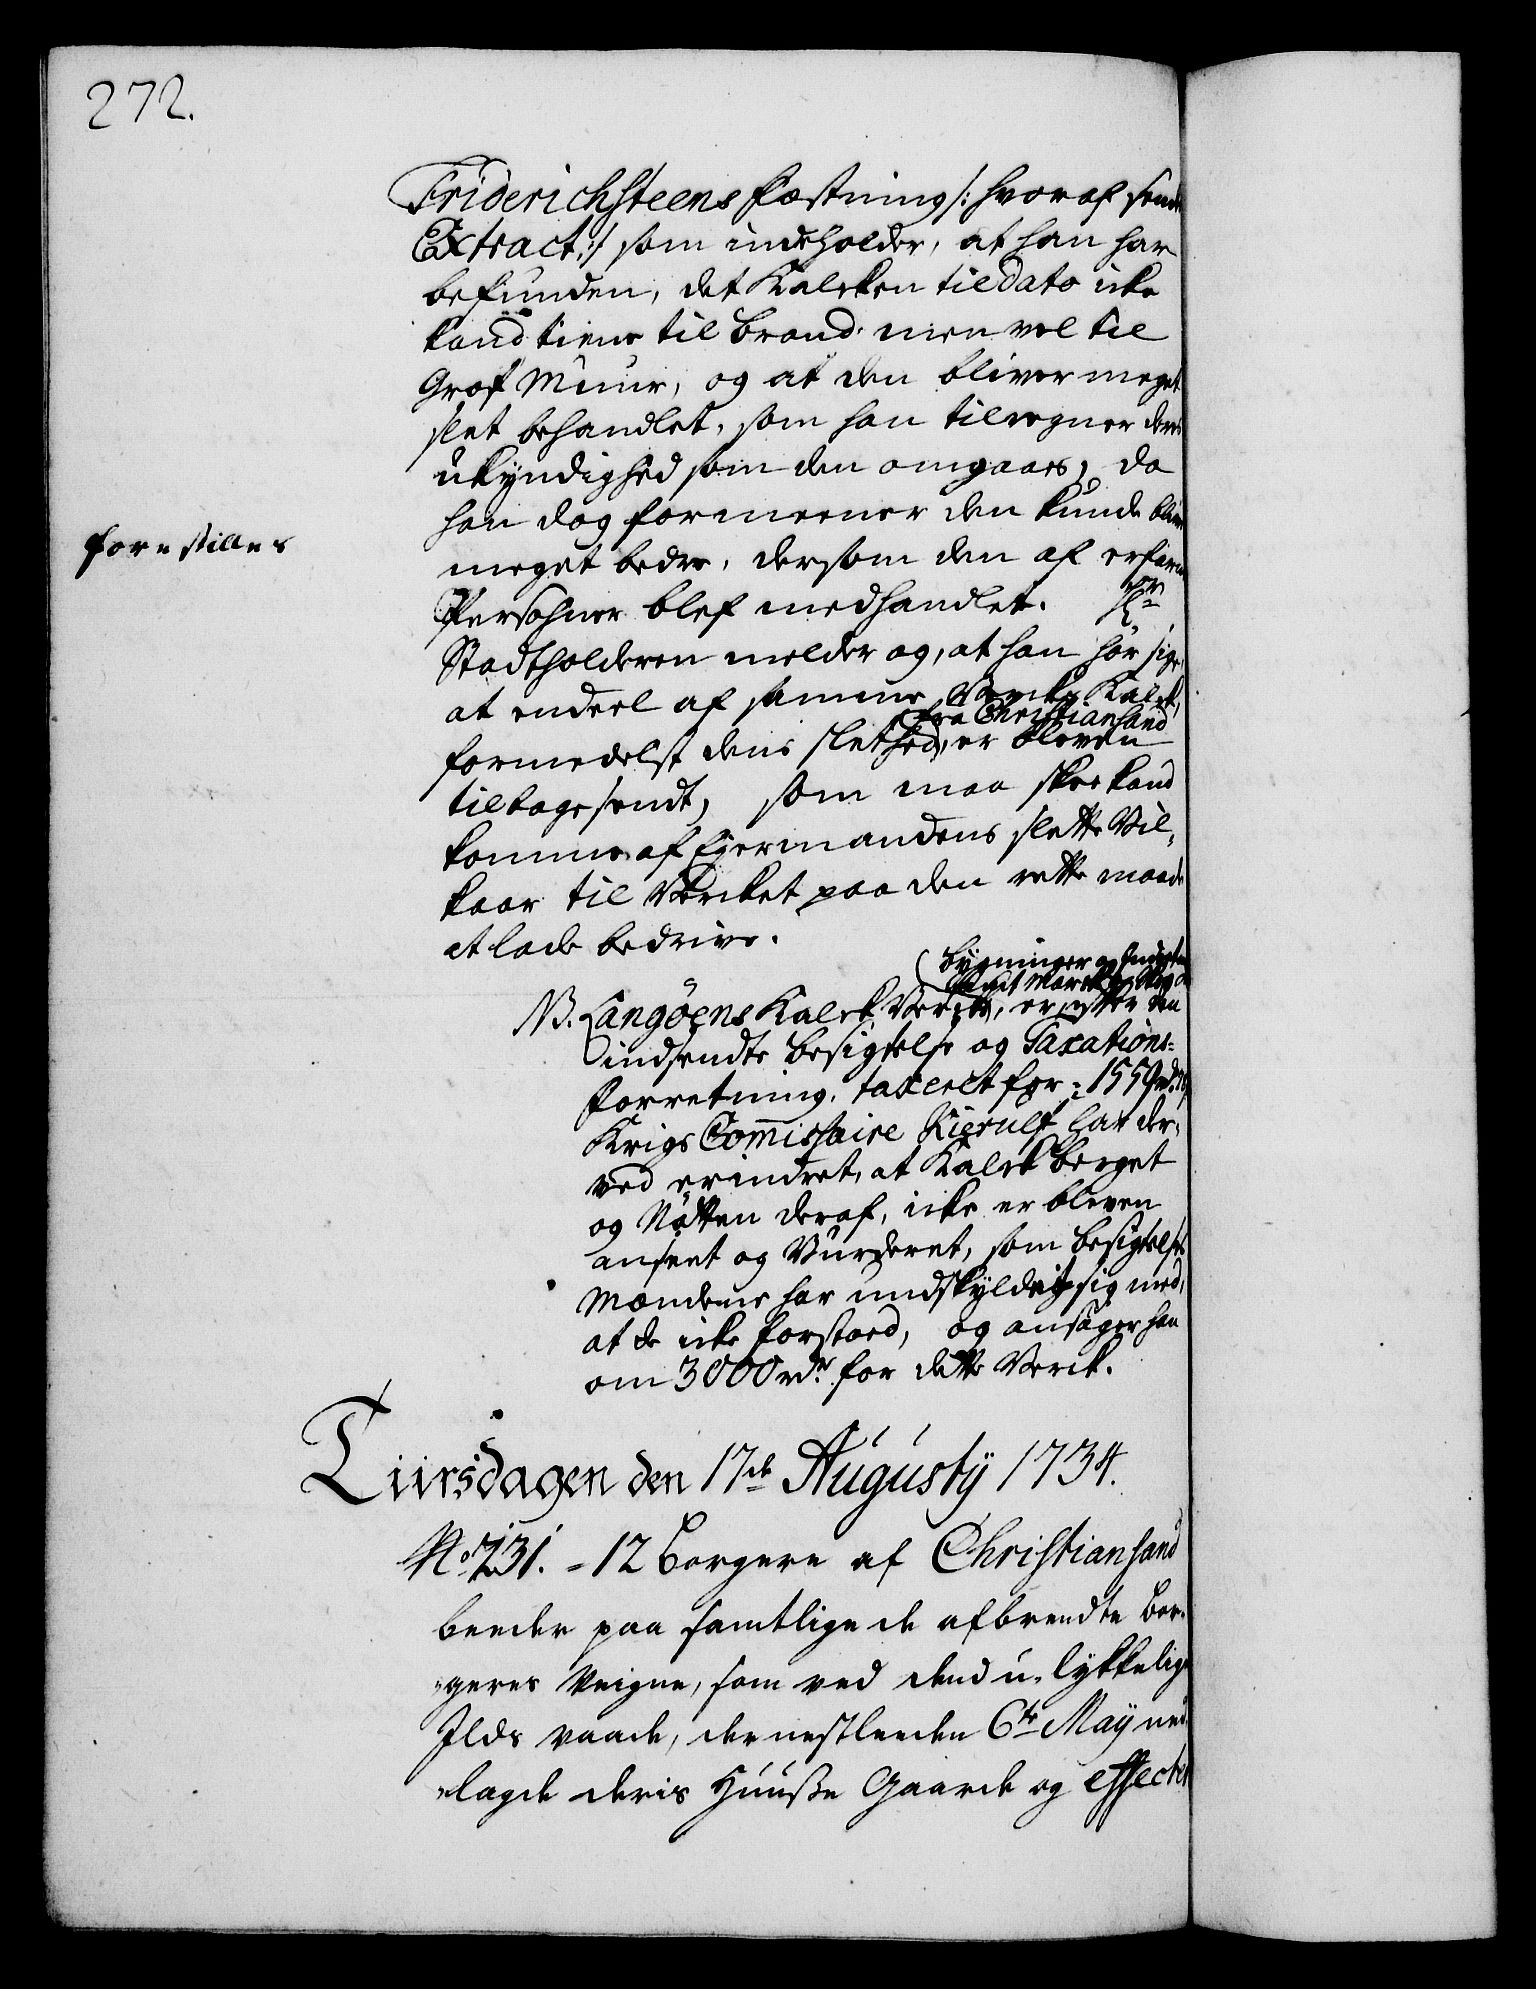 272.
Friderichsteens Fæstning /: hvoraf sendes
Extract :/ som indeholder, at han har
befunden, det Kalcken til dato icke
kand tiene til brand. men vel til
Grof Muur, og at den bliver meget
slet behandlet, som han tilregner deres
ukyndighed som den omgaaes, da
han dog formeener den kunde blive
forestilles
meget bedre, dersom den af erfarne
Persohner blef medhandlet. Hr
Stadtholderen melder og, at han hör sige,
at endeel af samme Vercks Kalck,
fra Christiansand
formedelst dens slethed, er bleven
tilbagesendt, som maa skee kand
komme af Eyermandens slette Vil-
kaar til Vercket paa den rette maade
at lade bedrive.
bygninger og
NB. Langöens Kalck Verck, er efter den
indsendte besigtelse og Taxations-
forretning, taxeret for 1559 rd.
Krigs Commissaire Kierulf har der-
ved erindret, at Kalck berget
og Nötten deraf, icke er bleven
anseet og Vurderet, som besigtelses
Mændene har undskyldet sig med,
at de icke forstoed, og ansöger han
om 3000 rdr. for dette Verck.
Tiirsdagen den 17de Augusty 1734.
No. 231. - 12 borgere af Christiansand
beeder paa samtlige de afbrendte bor-
geres veigne, som ved dend u-lykkelige
Ilds vaade, der nestleeden 6te May ned-
lagde deris Huuße Gaarde og effecter